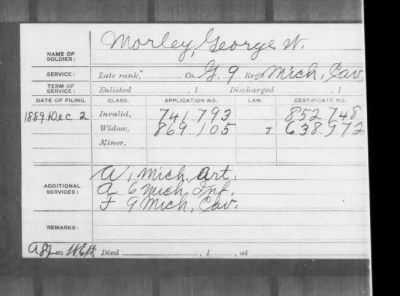 NAME OF SOLDIER: Morley, George W.
SERVICE: Late rank, Co. G. 9 Reg't Mich, Cav
TERM OF SERVICE: Enlisted , 1 Discharged , 1
DATE OF FILING. CLASS. APPLICATION NO. LAW. CERTIFICATE NO.
1889 Dec 2 Invalid, 741,793 852,748
Widow, 869,105 638,972
Minor,
ADDITIONAL SERVICES:
A, 1 Mich. Art.
A 6 Mich. Inf.
F 9 Mich. Cav.
REMARKS:
Died , 1 , at